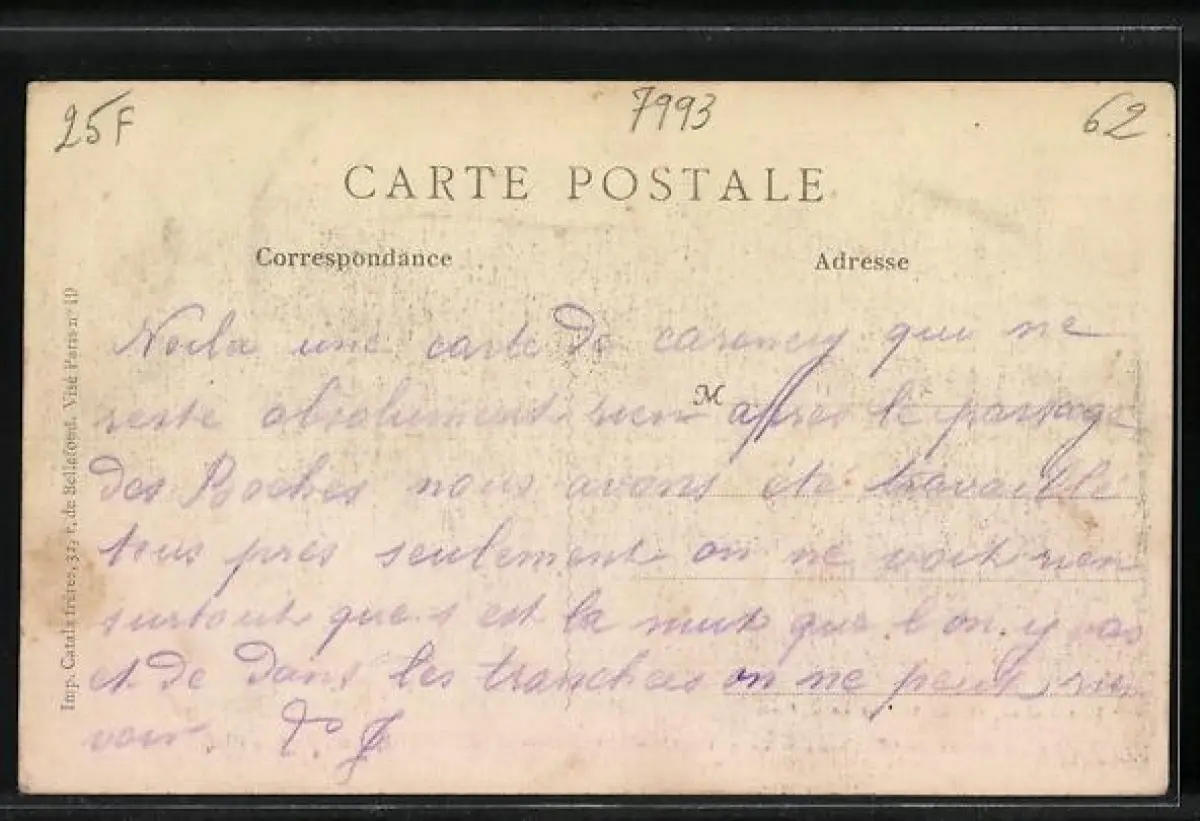 25F
7993
62
CARTE POSTALE
Correspondance
Adresse
Imp. Catala frères, 31, r. de Bellefond. Visé Paris n° 19
Voila une carte de carency que ne
M
reste absolument rien après le passage
des Boches nous avons été travaillé
tous près seulement on ne voit rien
surtout que s est la nuit que l on y vas
et de dans les tranchées on ne peut rien
voir